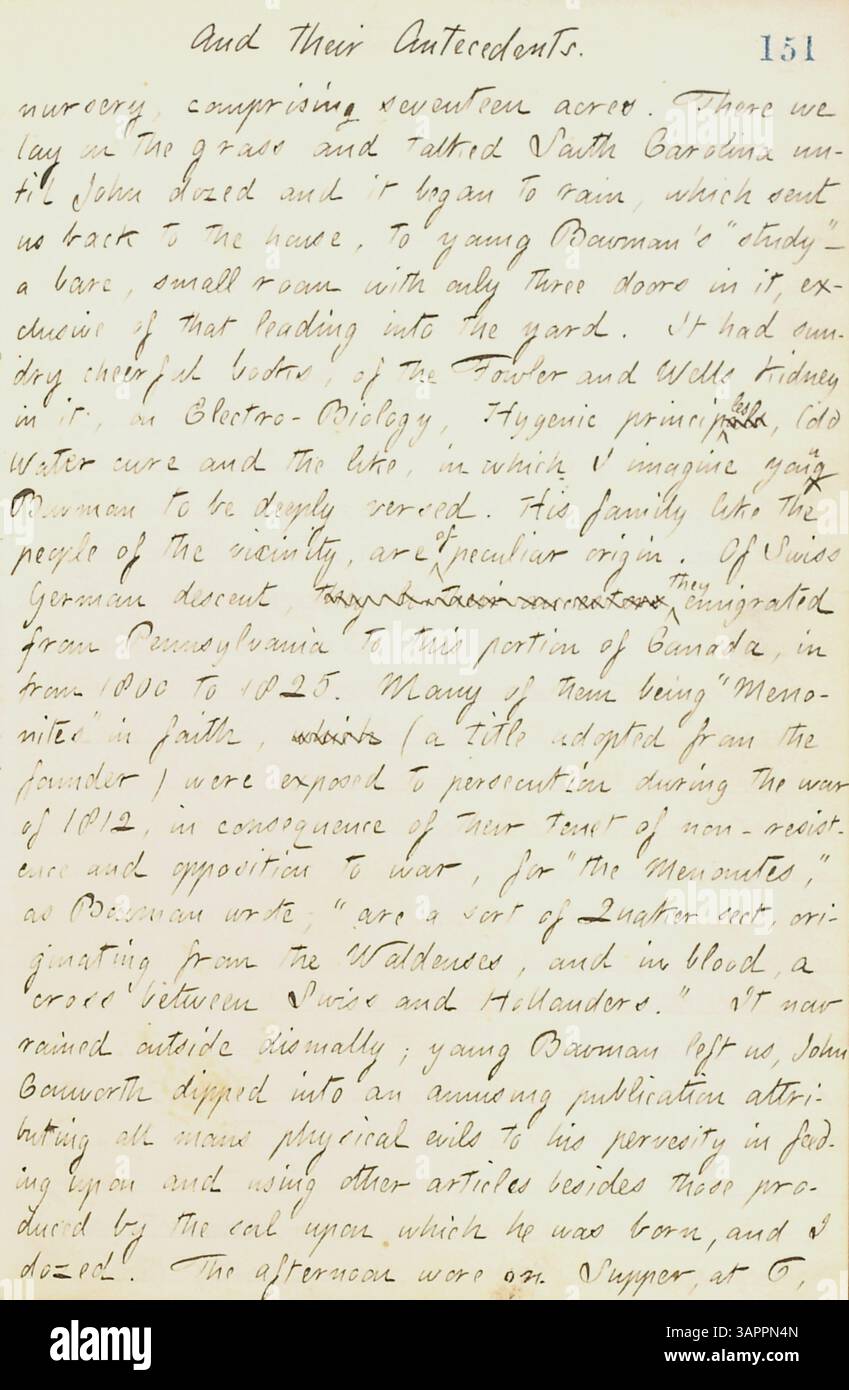 And their Antecedents.
151
nursery, comprising seventeen acres. There we
lay on the grass and talked South Carolina un-
til John dozed and it began to rain, which sent
us back to the house, to young Bowman's "study"—
a bare, small room with only three doors in it, ex-
clusive of that leading into the yard. It had sun-
dry cheerful books, of the Fowler and Wells kidney
in it, on Electro-Biology, Hygenic principles, (do)
Water cure and the like, in which I imagine young
Bowman to be deeply versed. His family like the
people of the vicinity, are of peculiar origin. Of Swiss
German descent, they emigrated
from Pennsylvania to this portion of Canada, in
from 1800 to 1825. Many of them being "Meno-
nites" in faith, which (a title adopted from the
founder) were exposed to persecution during the war
of 1812, in consequence of their tenet of non-resist-
ence and opposition to war, for "the Menonites,"
as Bowman wrote, "are a sort of Quaker sect, ori-
ginating from the Waldenses, and in blood, a
cross between Swiss and Hollanders." It now
rained outside dismally; young Bowman left us, John
Conworth dipped into an amusing publication attri-
buting all mans physical evils to his pervesity in feed-
ing upon and using other articles besides those pro-
duced by the soil upon which he was born, and I
dozed. The afternoon wore on. Supper, at 6,
alamy
Image ID: 3APPN4N
www.alamy.com